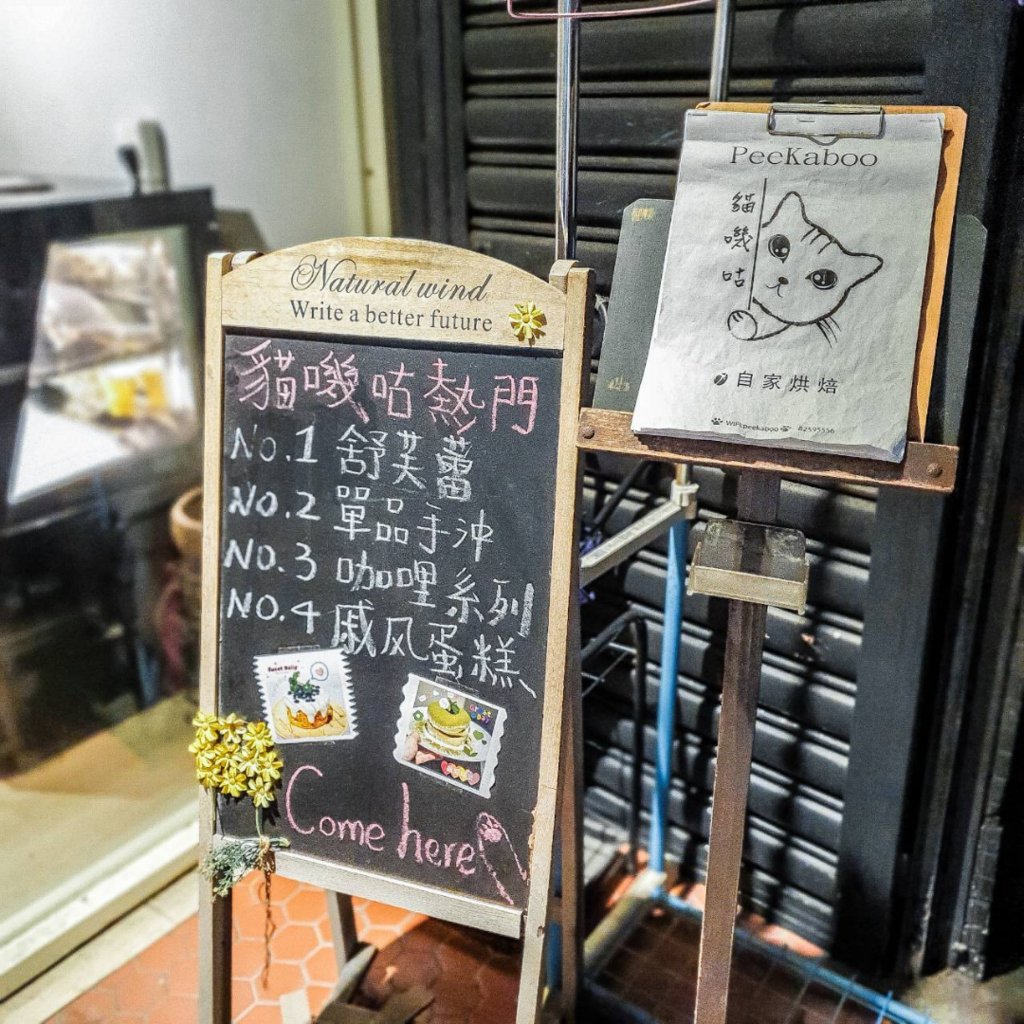 Natural wind
Write a better future
貓嘰咕熱門
No.1 舒芙蕾
No.2 單品手沖
No.3 咖哩系列
No.4 戚风蛋糕
Come here
PeeKaboo
貓嘰咕
自家烘焙
WiFi:peekaboo 82595556